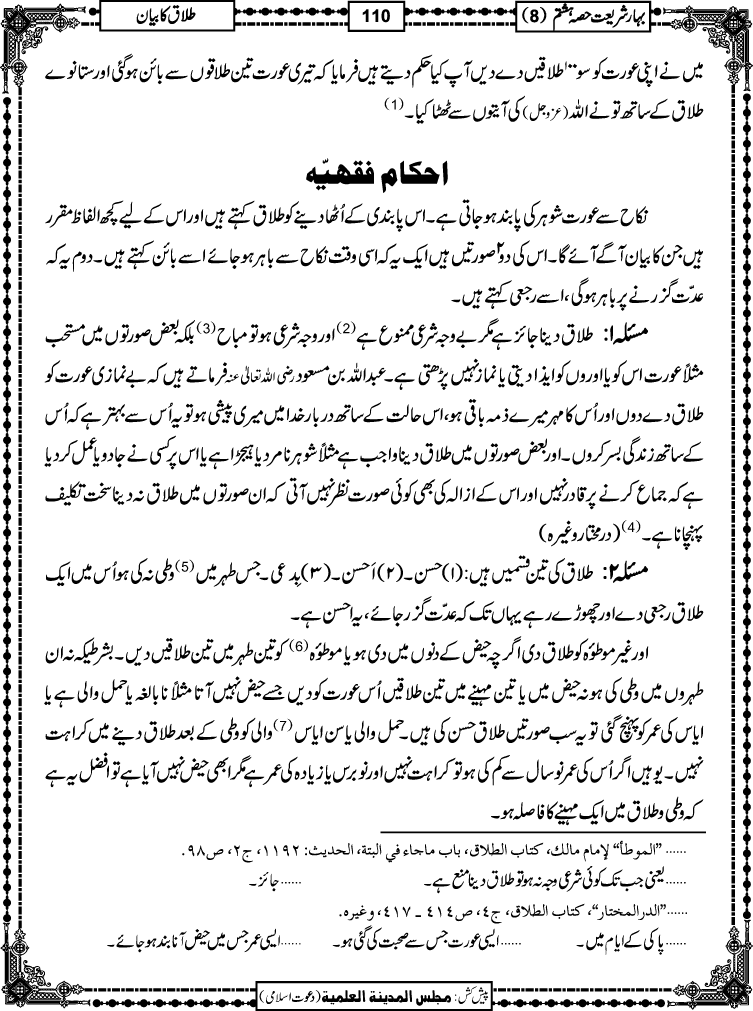 بہارِ شریعت حصہ ہشتم (8)
110
طلاق کا بیان
میں نے اپنی عورت کو سو۱۰۰ طلاقیں دے دیں آپ کیا حکم دیتے ہیں فرمایا کہ تیری عورت تین طلاقوں سے بائن ہوگئی اور ستانوے
طلاق کے ساتھ تو نے اللہ (عزوجل) کی آیتوں سے ٹھٹا کیا۔ (1)
احکام فقہیّہ
نکاح سے عورت شوہر کی پابند ہو جاتی ہے۔ اس پابندی کے اُٹھا دینے کو طلاق کہتے ہیں اور اس کے لیے کچھ الفاظ مقرر
ہیں جن کا بیان آگے آئے گا۔ اس کی دو۲ صورتیں ہیں ایک یہ کہ اسی وقت نکاح سے باہر ہو جائے اسے بائن کہتے ہیں۔ دوم یہ کہ
عدّت گزرنے پر باہر ہوگی، اسے رجعی کہتے ہیں۔
مسئلہ ۱: طلاق دینا جائز ہے مگر بے وجہ شرعی ممنوع ہے (2) اور وجہ شرعی ہو تو مباح (3) بلکہ بعض صورتوں میں مستحب
مثلاً عورت اس کو یا اوروں کو ایذا دیتی یا نماز نہیں پڑھتی ہے۔ عبداللہ بن مسعود رضی اللہ تعالیٰ عنہ فرماتے ہیں کہ بے نمازی عورت کو
طلاق دے دوں اور اُس کا مہر میرے ذمہ باقی ہو، اس حالت کے ساتھ دربار خدا میں میری پیشی ہو تو یہ اُس سے بہتر ہے کہ اُس
کے ساتھ زندگی بسر کروں۔ اور بعض صورتوں میں طلاق دینا واجب ہے مثلاً شوہر نامرد یا ہیجڑا ہے یا اس پر کسی نے جادو یا عمل کر دیا
ہے کہ جماع کرنے پر قادر نہیں اور اس کے ازالہ کی بھی کوئی صورت نظر نہیں آتی کہ ان صورتوں میں طلاق نہ دینا سخت تکلیف
پہنچانا ہے۔ (4) (درمختار وغیرہ)
مسئلہ ۲: طلاق کی تین قسمیں ہیں: (۱) حسن۔ (۲) اَحسن۔ (۳) بِدعی۔ جس طہر میں (5) وطی نہ کی ہو اُس میں ایک
طلاق رجعی دے اور چھوڑے رہے یہاں تک کہ عدّت گزر جائے، یہ احسن ہے۔
اور غیر موطؤہ کو طلاق دی اگرچہ حیض کے دنوں میں دی ہو یا موطؤہ (6) کو تین طہر میں تین طلاقیں دیں۔ بشرطیکہ نہ ان
طہروں میں وطی کی ہو نہ حیض میں یا تین مہینے میں تین طلاقیں اُس عورت کو دیں جسے حیض نہیں آتا مثلاً نابالغہ یا حمل والی ہے یا
ایاس کی عمر کو پہنچ گئی تو یہ سب صورتیں طلاق حسن کی ہیں۔ حمل والی یا سن ایاس (7) والی کو وطی کے بعد طلاق دینے میں کراہت
نہیں۔ یوہیں اگر اُس کی عمر نو سال سے کم کی ہو تو کراہت نہیں اور نو برس یا زیادہ کی عمر ہے مگر ابھی حیض نہیں آیا ہے تو افضل یہ ہے
کہ وطی و طلاق میں ایک مہینے کا فاصلہ ہو۔
...... ”الموطأ“ لإمام مالك، كتاب الطلاق، باب ماجاء في البتة، الحديث: ۱۱۹۲، ج۲، ص۹۸.
...... یعنی جب تک کوئی شرعی وجہ نہ ہو تو طلاق دینا منع ہے۔ ...... جائز۔
...... ”الدرالمختار“، كتاب الطلاق، ج٤، ص٤١٤ - ٤١٧، وغيره.
...... پاکی کے ایام میں۔ ...... ایسی عورت جس سے صحبت کی گئی ہو۔ ...... ایسی عمر جس میں حیض آنا بند ہو جائے۔
پیش کش: مجلس المدينة العلمية (دعوت اسلامی)